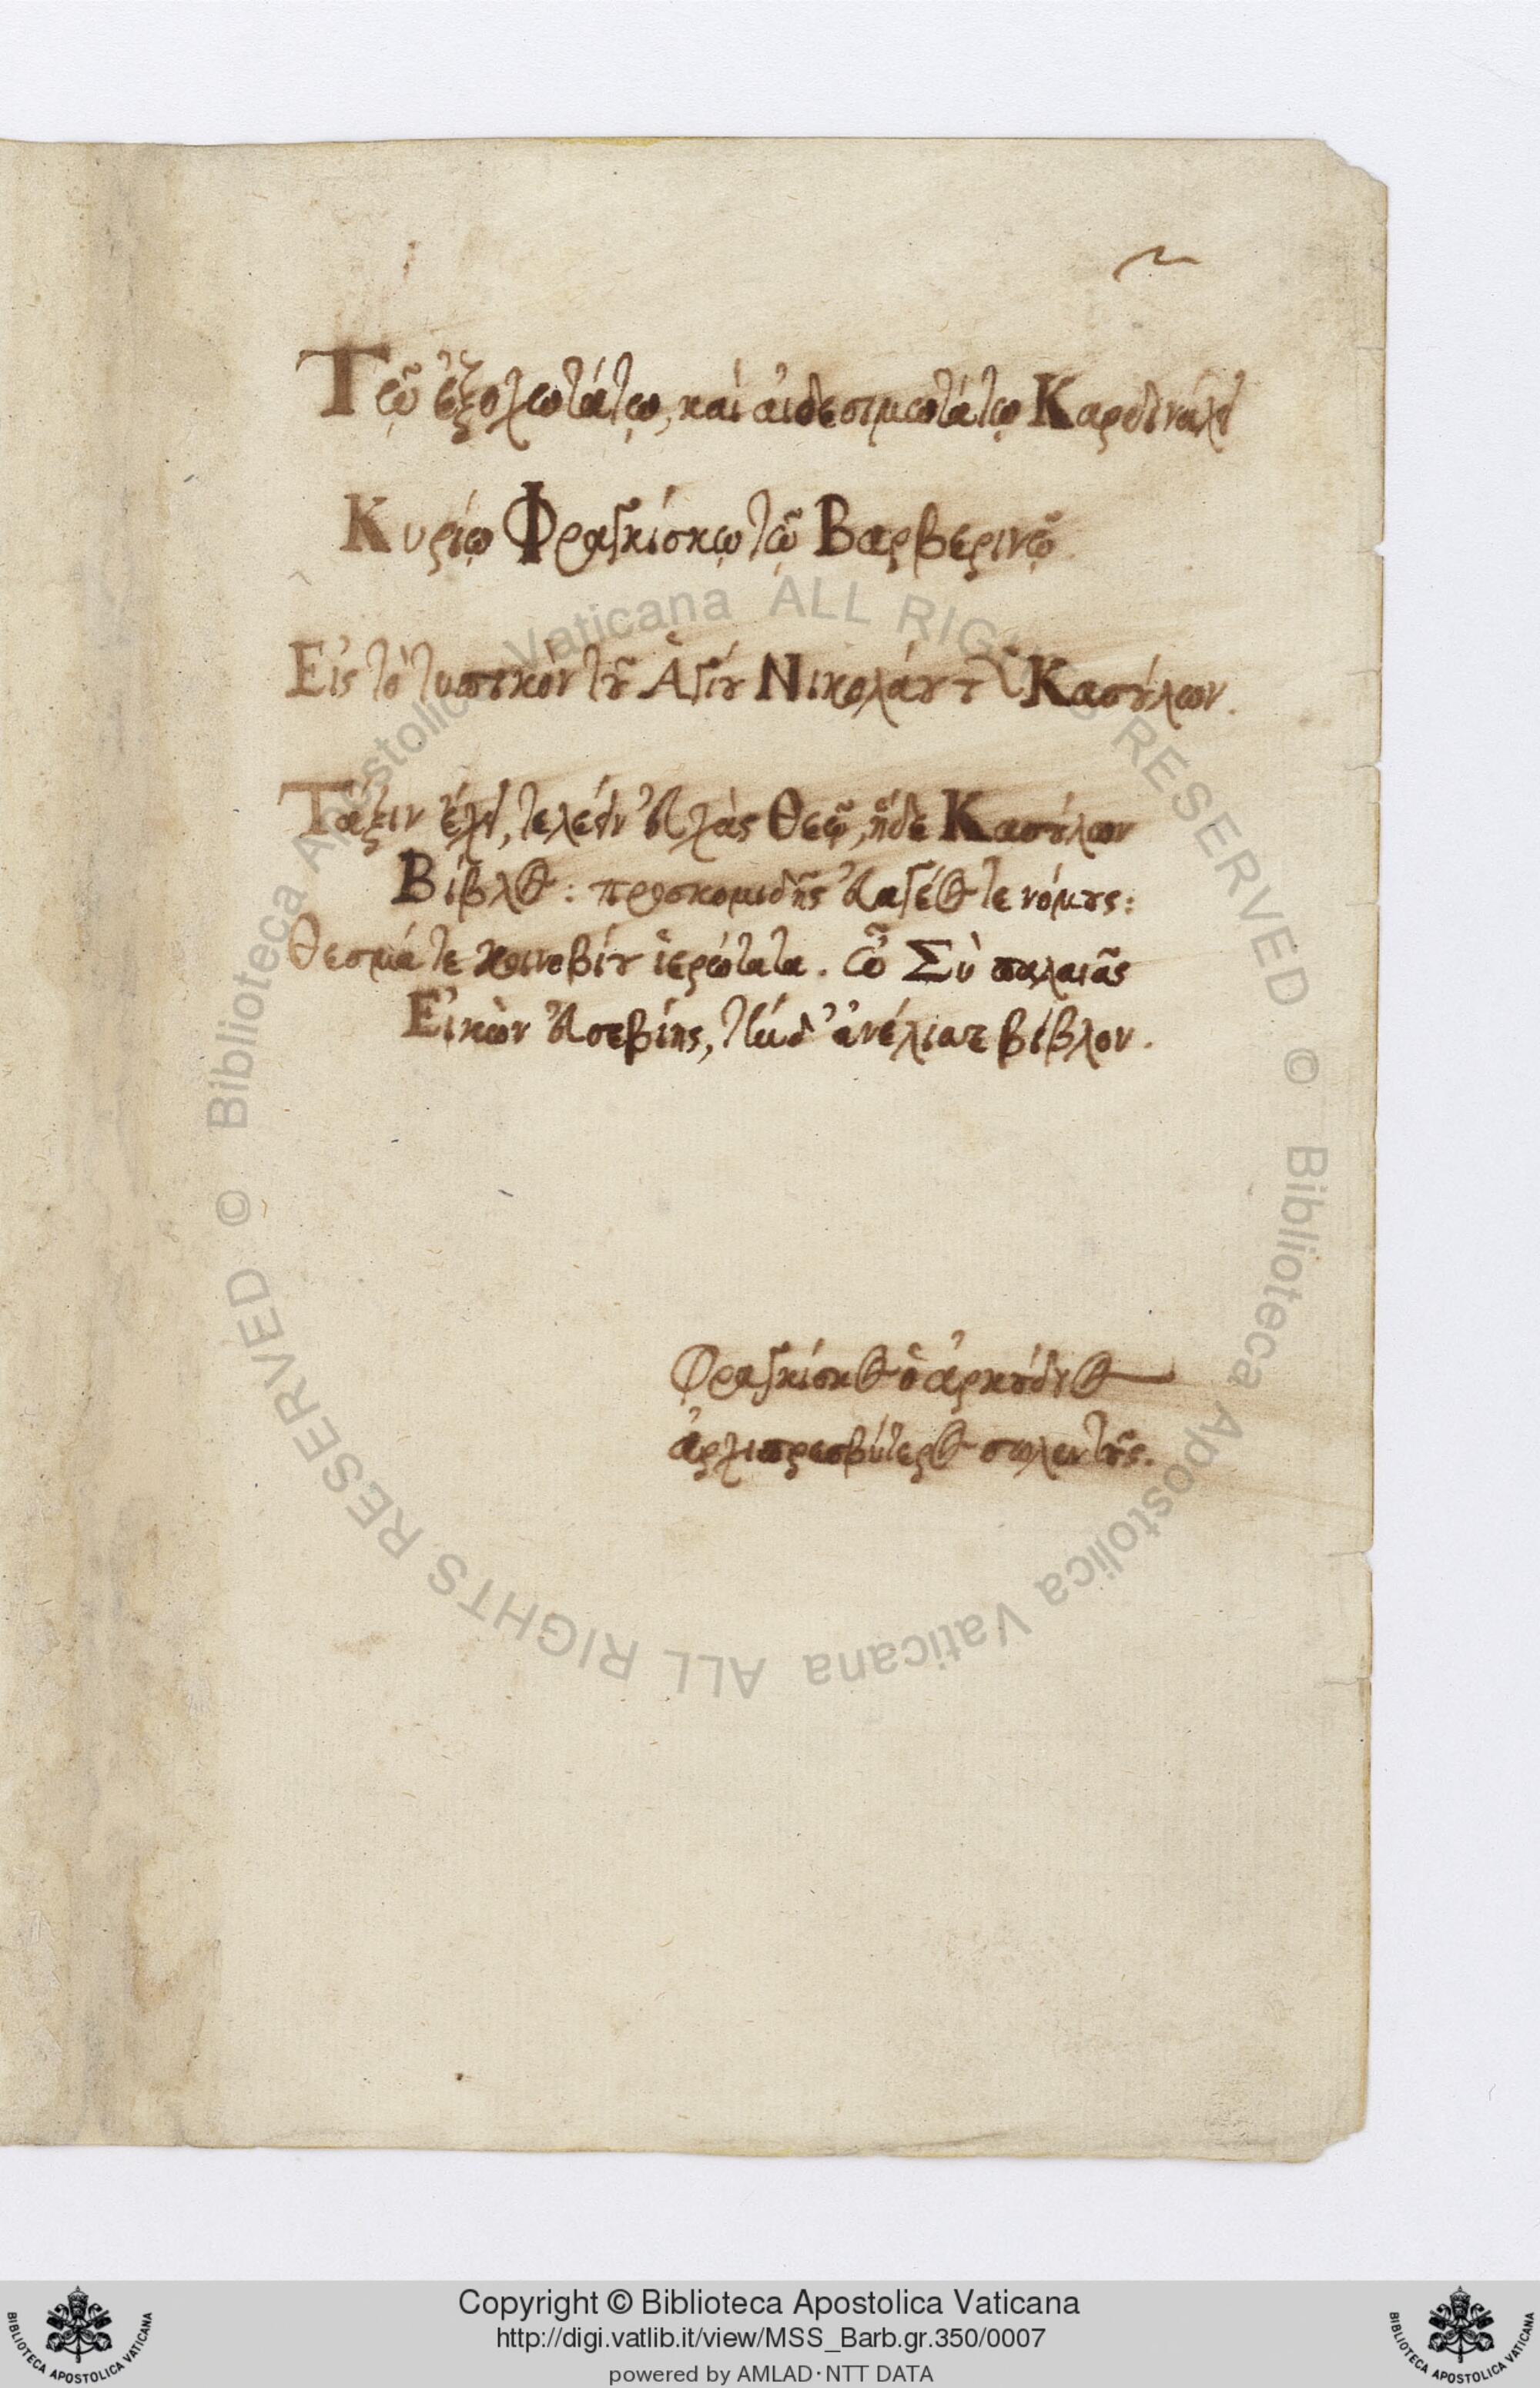 Τῷ ἐξοχωτάτῳ, καὶ αἰδεσιμωτάτῳ Καρδινάλει
Κυρίῳ Φραγκίσκῳ τῷ Βαρβερινῷ
Εἰς τὸ τυπικὸν τοῦ Ἁγίου Νικολάου τῶν Κασούλων.
Τάξιν ἔχει, τελέειν εὐχὰς Θεῷ, ἥδε Κασούλων
Βίβλος: προσκομιδῆς εὐαγέος τε νόμους:
Θεσμά τε κοινοβίου ἱερώτατα. ὦ Σὺ παλαιᾶς
Εἰκὼν εὐσεβίης, τήνδ' ἀνέλιττε βίβλον.
Φραγκίσκος ὁ ἀρκούδιος
ἀρχιπρεσβύτερος σωλεντῆς.
Copyright © Biblioteca Apostolica Vaticana
http://digi.vatlib.it/view/MSS_Barb.gr.350/0007
powered by AMLAD·NTT DATA
BIBLIOTECA APOSTOLICA VATICANA
BIBLIOTECA APOSTOLICA VATICANA
© Biblioteca Apostolica Vaticana ALL RIGHTS RESERVED © Biblioteca Apostolica Vaticana ALL RIGHTS RESERVED